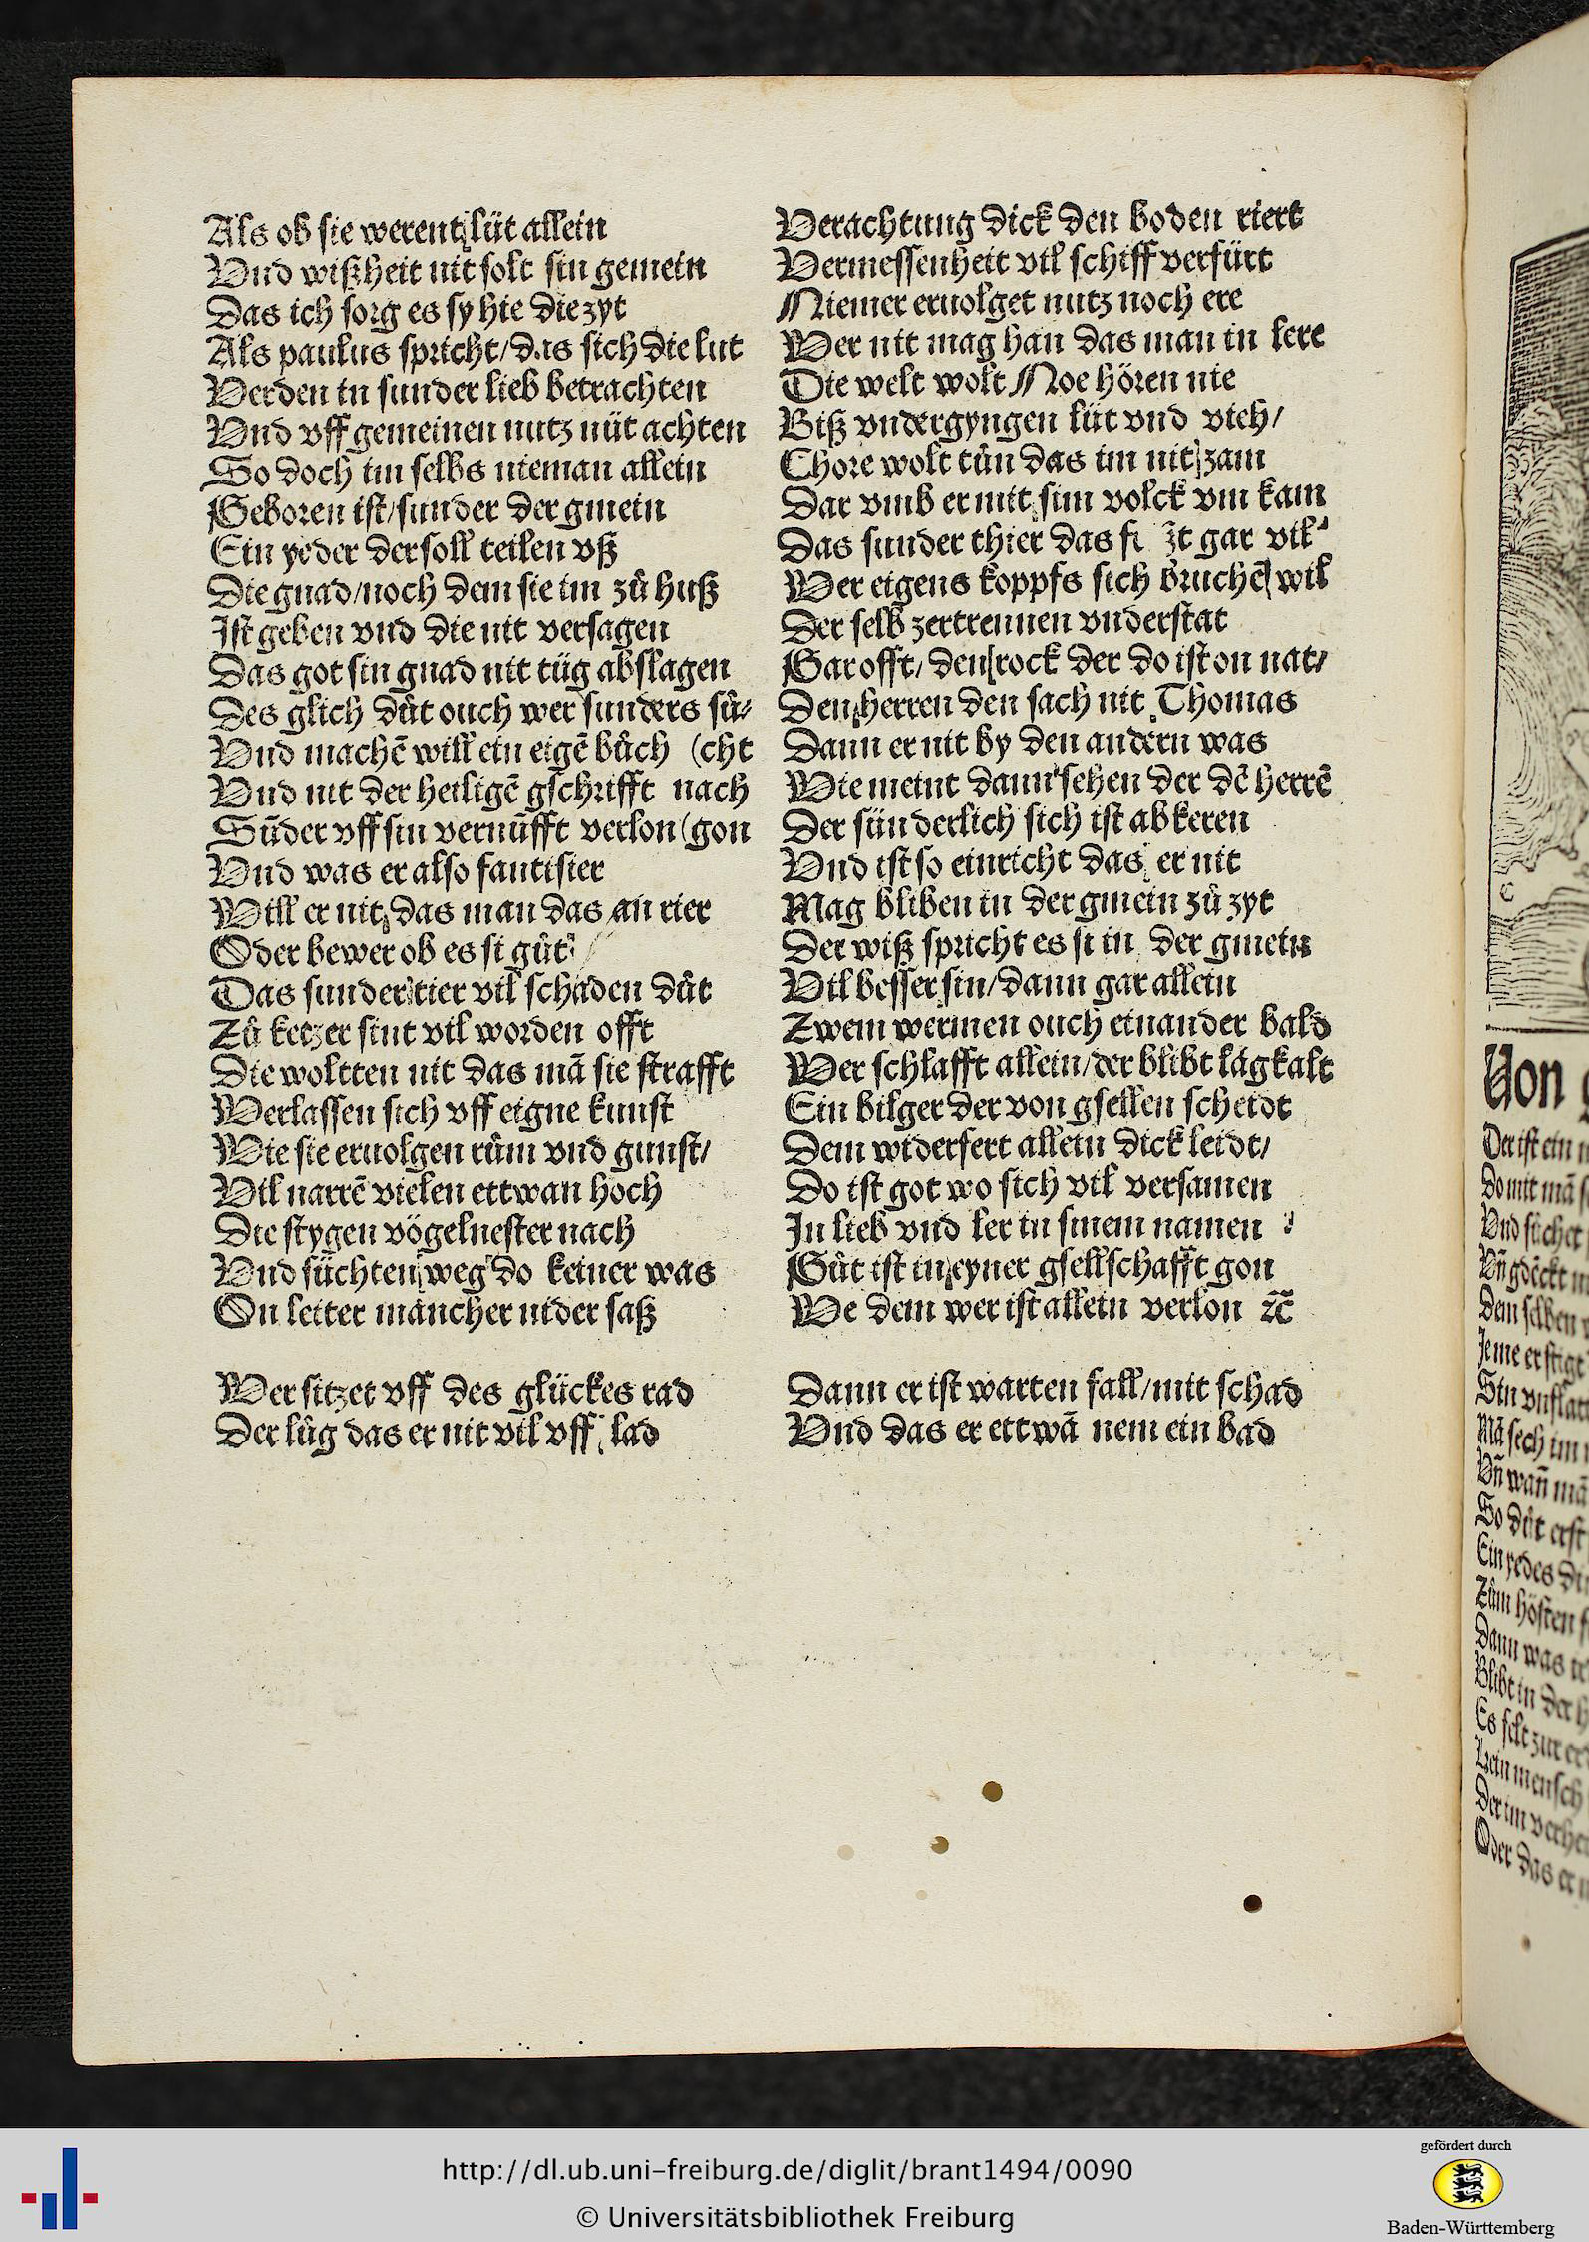 Als ob sie werent lüt allein
Vnd wißheit nit solt sin gemein
Das ich sorg es sy hie die zyt
Als paulus spricht/das sich die lut
Werden in sunder lieb betrachten
Vnd vff gemeinen nutz nüt achten
So doch im selbs nieman allein
Geboren ist/sunder der gmein
Ein yeder der soll teilen vß
Die gnad/noch dem sie im zů huß
Ist geben vnd die nit versagen
Das got sin gnad nit tüg abslagen
Des glich důt ouch wer sunders sů⸗
Vnd machē will ein eigē bůch (cht
Vnd nit der heiligē gschrifft nach
Sūder vff sin vernūfft verlon (gon
Vnd was er also fantisier
Will er nit das man das an rier
Oder bewer ob es si gůt
Das sunder tier vil schaden důt
Zů ketzer sint vil worden offt
Die woltten nit das mā sie strafft
Verlassen sich vff eigne kunst
Wie sie eruolgen rům vnd gunst/
Vil narrē vielen ettwan hoch
Die stygen vögelnester nach
Vnd süchten weg do keiner was
On leiter mancher nider saß
Wer sitzet vff des glückes rad
Der lůg das er nit vil vff lad
Verachtung dick den boden riert
Vermessenheit vil schiff verfürt
Niemer eruolget nutz noch ere
Wer nit mag han das man in lere
Die welt wolt Noe hören nie
Biß vndergyngen lüt vnd vieh/
Chore wolt tůn das im nit zam
Dar vmb er mit sim volck vm kam
Das sunder thier das fi ʒt gar vil
Wer eigens koppfs sich bruchē wil
Der selb zertrennen vnderstat
Gar offt/den rock der do ist on nat/
Den herren den sach nit Thomas
Dann er nit by den andern was
Wie meint dann sehen der dē herrē
Der sünderlich sich ist abkeren
Vnd ist so einricht das er nit
Mag bliben in der gmein zů zyt
Der wiß spricht es si in der gmein
Vil besser sin/dann gar allein
Zwem wermen ouch einander bald
Wer schlafft allein/der blibt lāg kalt
Ein bilger der von gsellen scheidt
Dem widerfert allein dick leidt/
Do ist got wo sich vil versamen
In lieb vnd ler in sinem namen
Gůt ist in eyner gsellschafft gon
We dem wer ist allein verlon ⁊c̄
Dann er ist warten fall/mit schad
Vnd das er ettwā nem ein bad
Von
Der ist ein
Do mit mā
Vnd sicher
Vn̄ gdēckt
Dem selben
Je me er stigt
Sin vnflat
Mā sech im
Vn̄ wan̄ mā
So důt erst
Ein yedes
Zům hösten
Dann was
Blibt in der
Es felt zur
Kein mensch
Der im
Oder das er
http://dl.ub.uni-freiburg.de/diglit/brant1494/0090
© Universitätsbibliothek Freiburg
gefördert durch
Baden-Württemberg